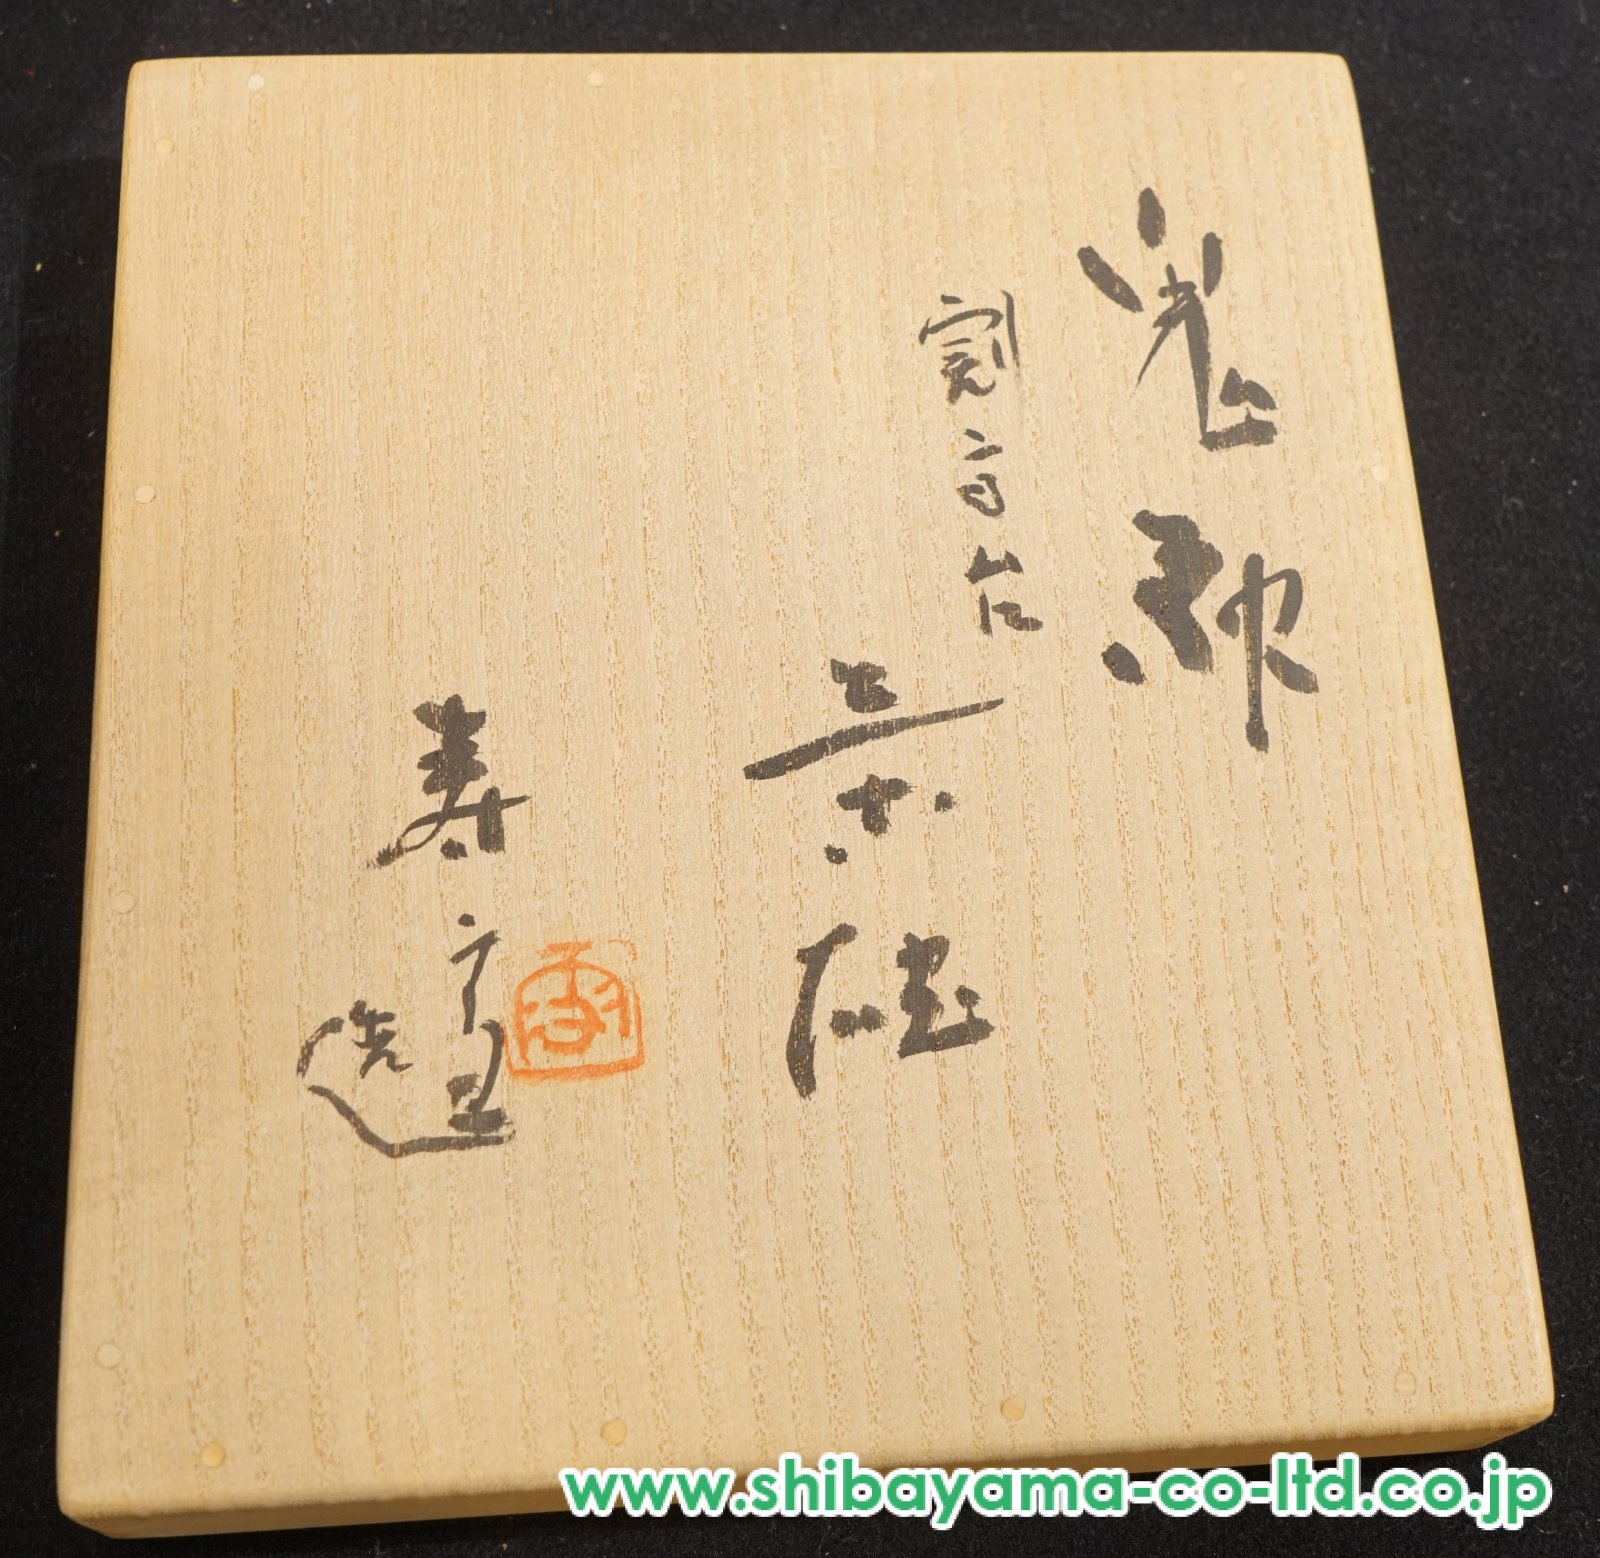 鬼萩
割高台
茶碗
寿雪
造
www.shibayama-co-ltd.co.jp